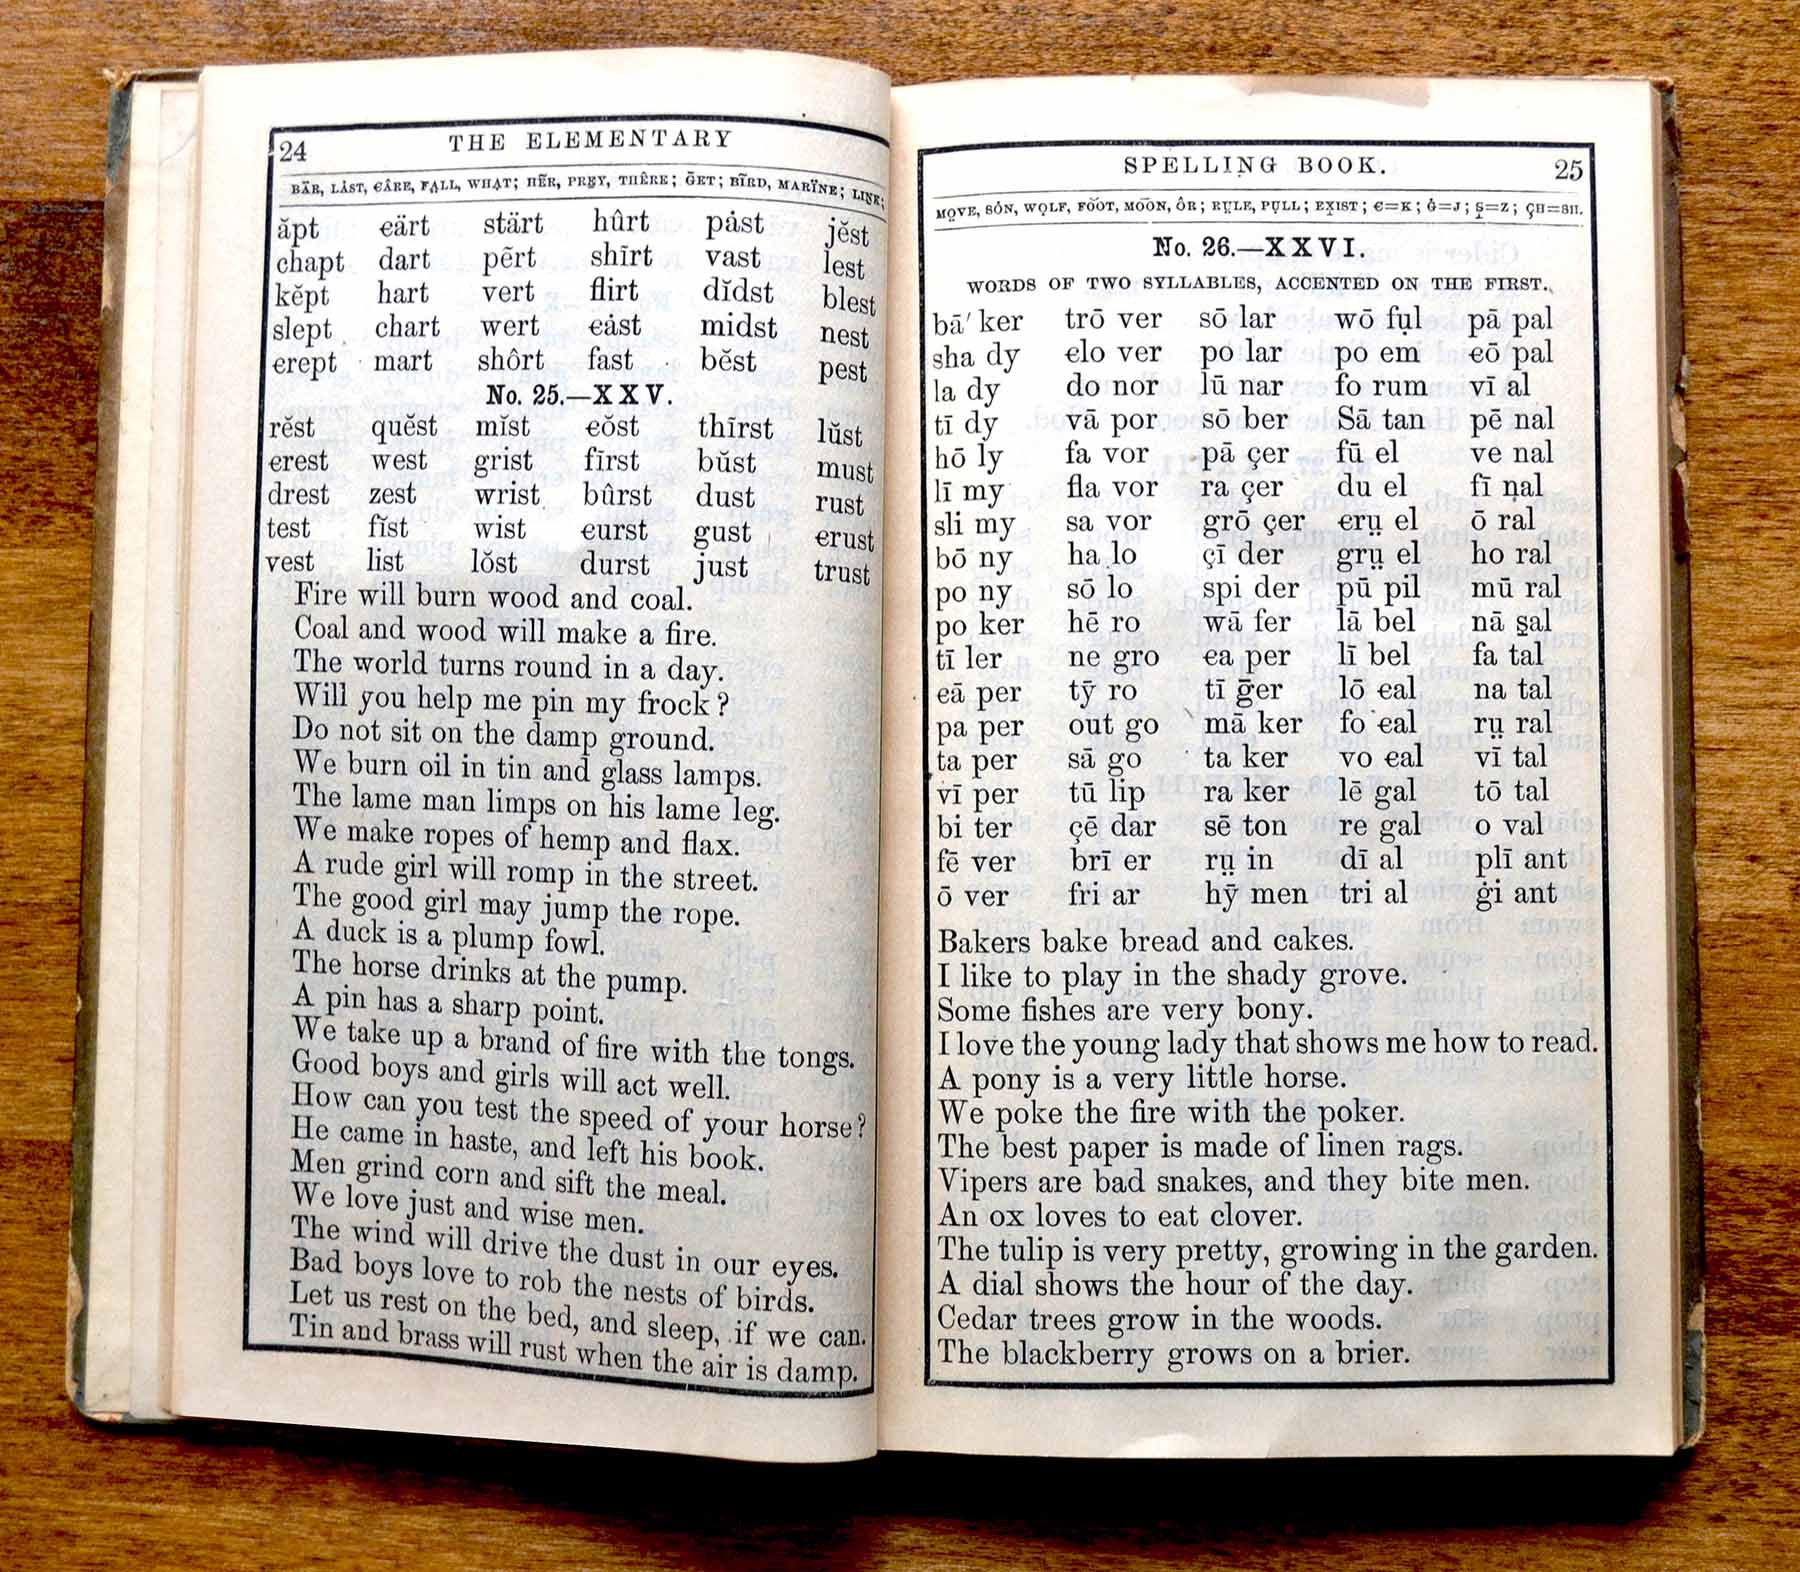 24 THE ELEMENTARY
BÄR, LȦST, ꞒÂRE, FA̤LL, WHẠT; HẼR, PREY, THÊRE; ḠET; BĨRD, MARÏNE; LIṈK;
ăpt ꞓärt stärt hûrt pȧst jĕst
chapt dart pẽrt shĩrt vast lest
kĕpt hart vert flirt dĭdst blest
slept chart wert ꞓȧst midst nest
ꞓrept mart shôrt fast bĕst pest
No. 25.—XXV.
rĕst quĕst mĭst ꞓŏst thĩrst lŭst
ꞓrest west grist fĩrst bŭst must
drest zest wrist bûrst dust rust
test fĭst wist ꞓurst gust ꞓrust
vest list lŏst durst just trust
Fire will burn wood and coal.
Coal and wood will make a fire.
The world turns round in a day.
Will you help me pin my frock?
Do not sit on the damp ground.
We burn oil in tin and glass lamps.
The lame man limps on his lame leg.
We make ropes of hemp and flax.
A rude girl will romp in the street.
The good girl may jump the rope.
A duck is a plump fowl.
The horse drinks at the pump.
A pin has a sharp point.
We take up a brand of fire with the tongs.
Good boys and girls will act well.
How can you test the speed of your horse?
He came in haste, and left his book.
Men grind corn and sift the meal.
We love just and wise men.
The wind will drive the dust in our eyes.
Bad boys love to rob the nests of birds.
Let us rest on the bed, and sleep, if we can.
Tin and brass will rust when the air is damp.
SPELLING BOOK. 25
MO̤VE, SȮN, WỌLF, FO͝OT, MO͞ON, ÔR; RṲLE, PỤLL; EX̱IST; Ꞓ=K; Ġ=J; S̱=Z; ÇH=SH.
No. 26.—XXVI.
WORDS OF TWO SYLLABLES, ACCENTED ON THE FIRST.
bā′ ker trō ver sō lar wō fụl pā pal
sha dy ꞓlo ver po lar po em ꞓō pal
la dy do nor lū nar fo rum vī al
tī dy vā por sō ber Sā tan pē nal
hō ly fa vor pā çer fū el ve nal
lī my fla vor ra çer du el fī nal
sli my sa vor grō çer ꞓrṳ el ō ral
bō ny ha lo çī der grṳ el ho ral
po ny sō lo spi der pū pil mū ral
po ker hē ro wā fer lā bel nā s̱al
tī ler ne gro ꞓa per lī bel fa tal
ꞓā per tȳ ro tī ḡer lō ꞓal na tal
pa per out go mā ker fo ꞓal rṳ ral
ta per sā go ta ker vo ꞓal vī tal
vī per tū lip ra ker lē gal tō tal
bi ter çē dar sē ton re gal o val
fē ver brī er rṳ in dī al plī ant
ō ver fri ar hȳ men tri al ġi ant
Bakers bake bread and cakes.
I like to play in the shady grove.
Some fishes are very bony.
I love the young lady that shows me how to read.
A pony is a very little horse.
We poke the fire with the poker.
The best paper is made of linen rags.
Vipers are bad snakes, and they bite men.
An ox loves to eat clover.
The tulip is very pretty, growing in the garden.
A dial shows the hour of the day.
Cedar trees grow in the woods.
The blackberry grows on a brier.